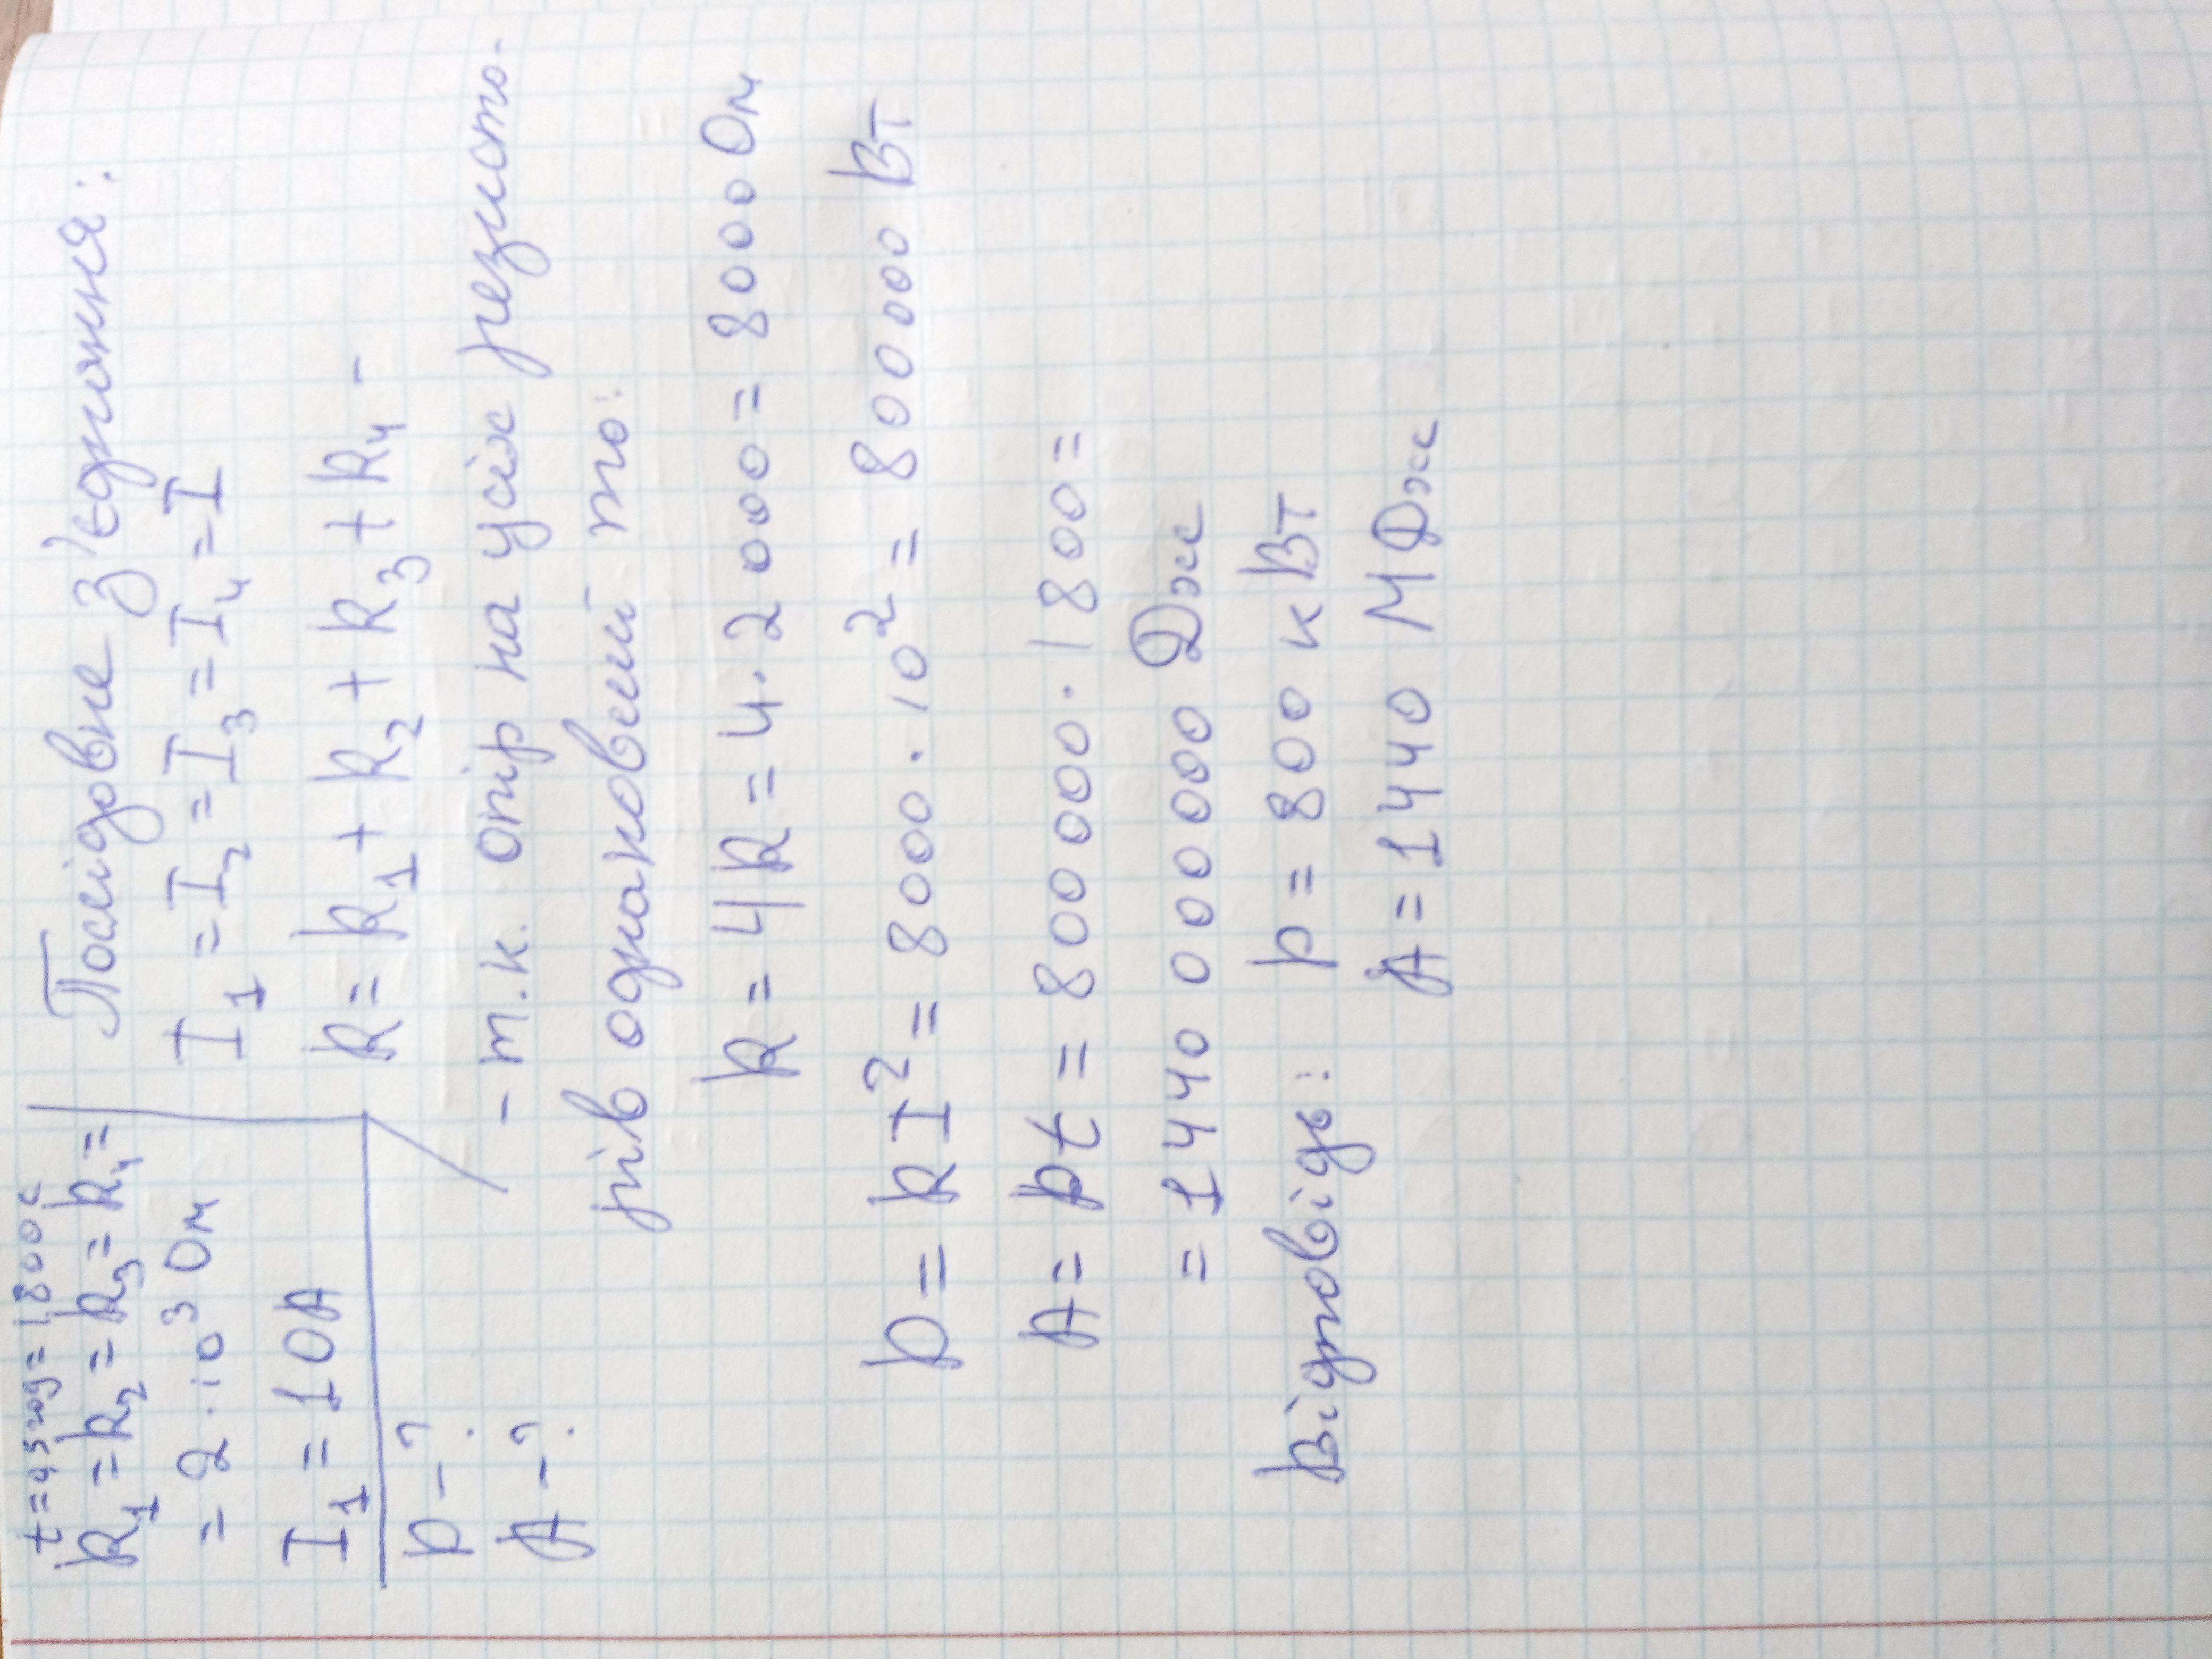 t=0,5 год=1800с
R₁=R₂=R₃=R₄=
=2·10³ Ом
I₁=10А
P-?
A-?
Послідовне з'єднання:
I₁=I₂=I₃=I₄=I
R=R₁+R₂+R₃+R₄-
-т.к. опір на усіх резисто-
рів однаковий то:
R=4R=4·2000=8000 Ом
P=RI²=8000·10²=800000 Вт
A=Pt=800000·1800=
=1440 000 000 Дж
Відповідь: P=800 кВт
A=1440 МДж